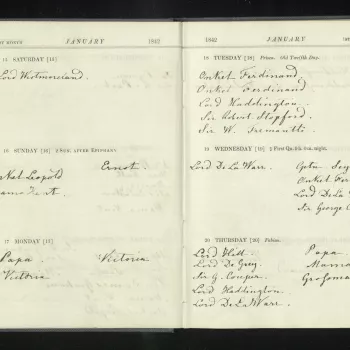 JANUARY 1842
15 SATURDAY [15]
Lord Westmoreland.
16 SUNDAY [16] 2 SUN. AFTER EPIPHANY
Ernst.
Onkel Leopold
17 MONDAY [17]
Papa. Victoria
Victoria
1842 JANUARY
18 TUESDAY [18] Prisca. Old Twelfth Day.
Onkel Ferdinand.
Onkel Ferdinand
Lord Haddington.
Sir Robert Stopford.
Sir W.
19 WEDNESDAY [19]
Lord De La Warr.
Onkel Fer
Lord De La
Sir George C
20 THURSDAY [20] Fabian.
Lord Hill. Papa
Lord De Grey. Mama
Sir G. Couper. Grosmama
Lord Haddington.
Lord De La Warr.